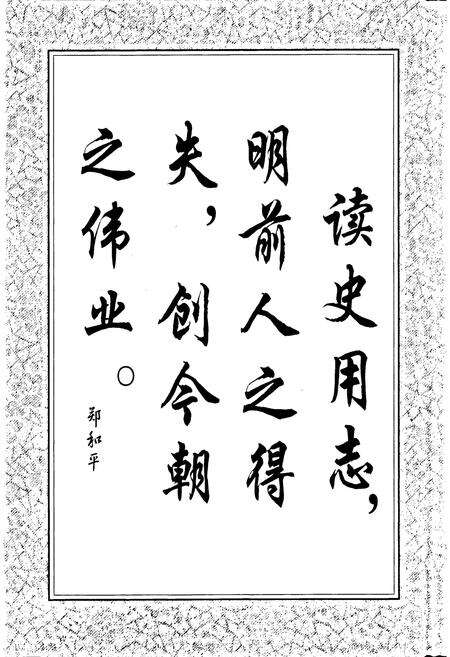 读史用志，
明前人之得
失，创今朝
之伟业。
郑和平